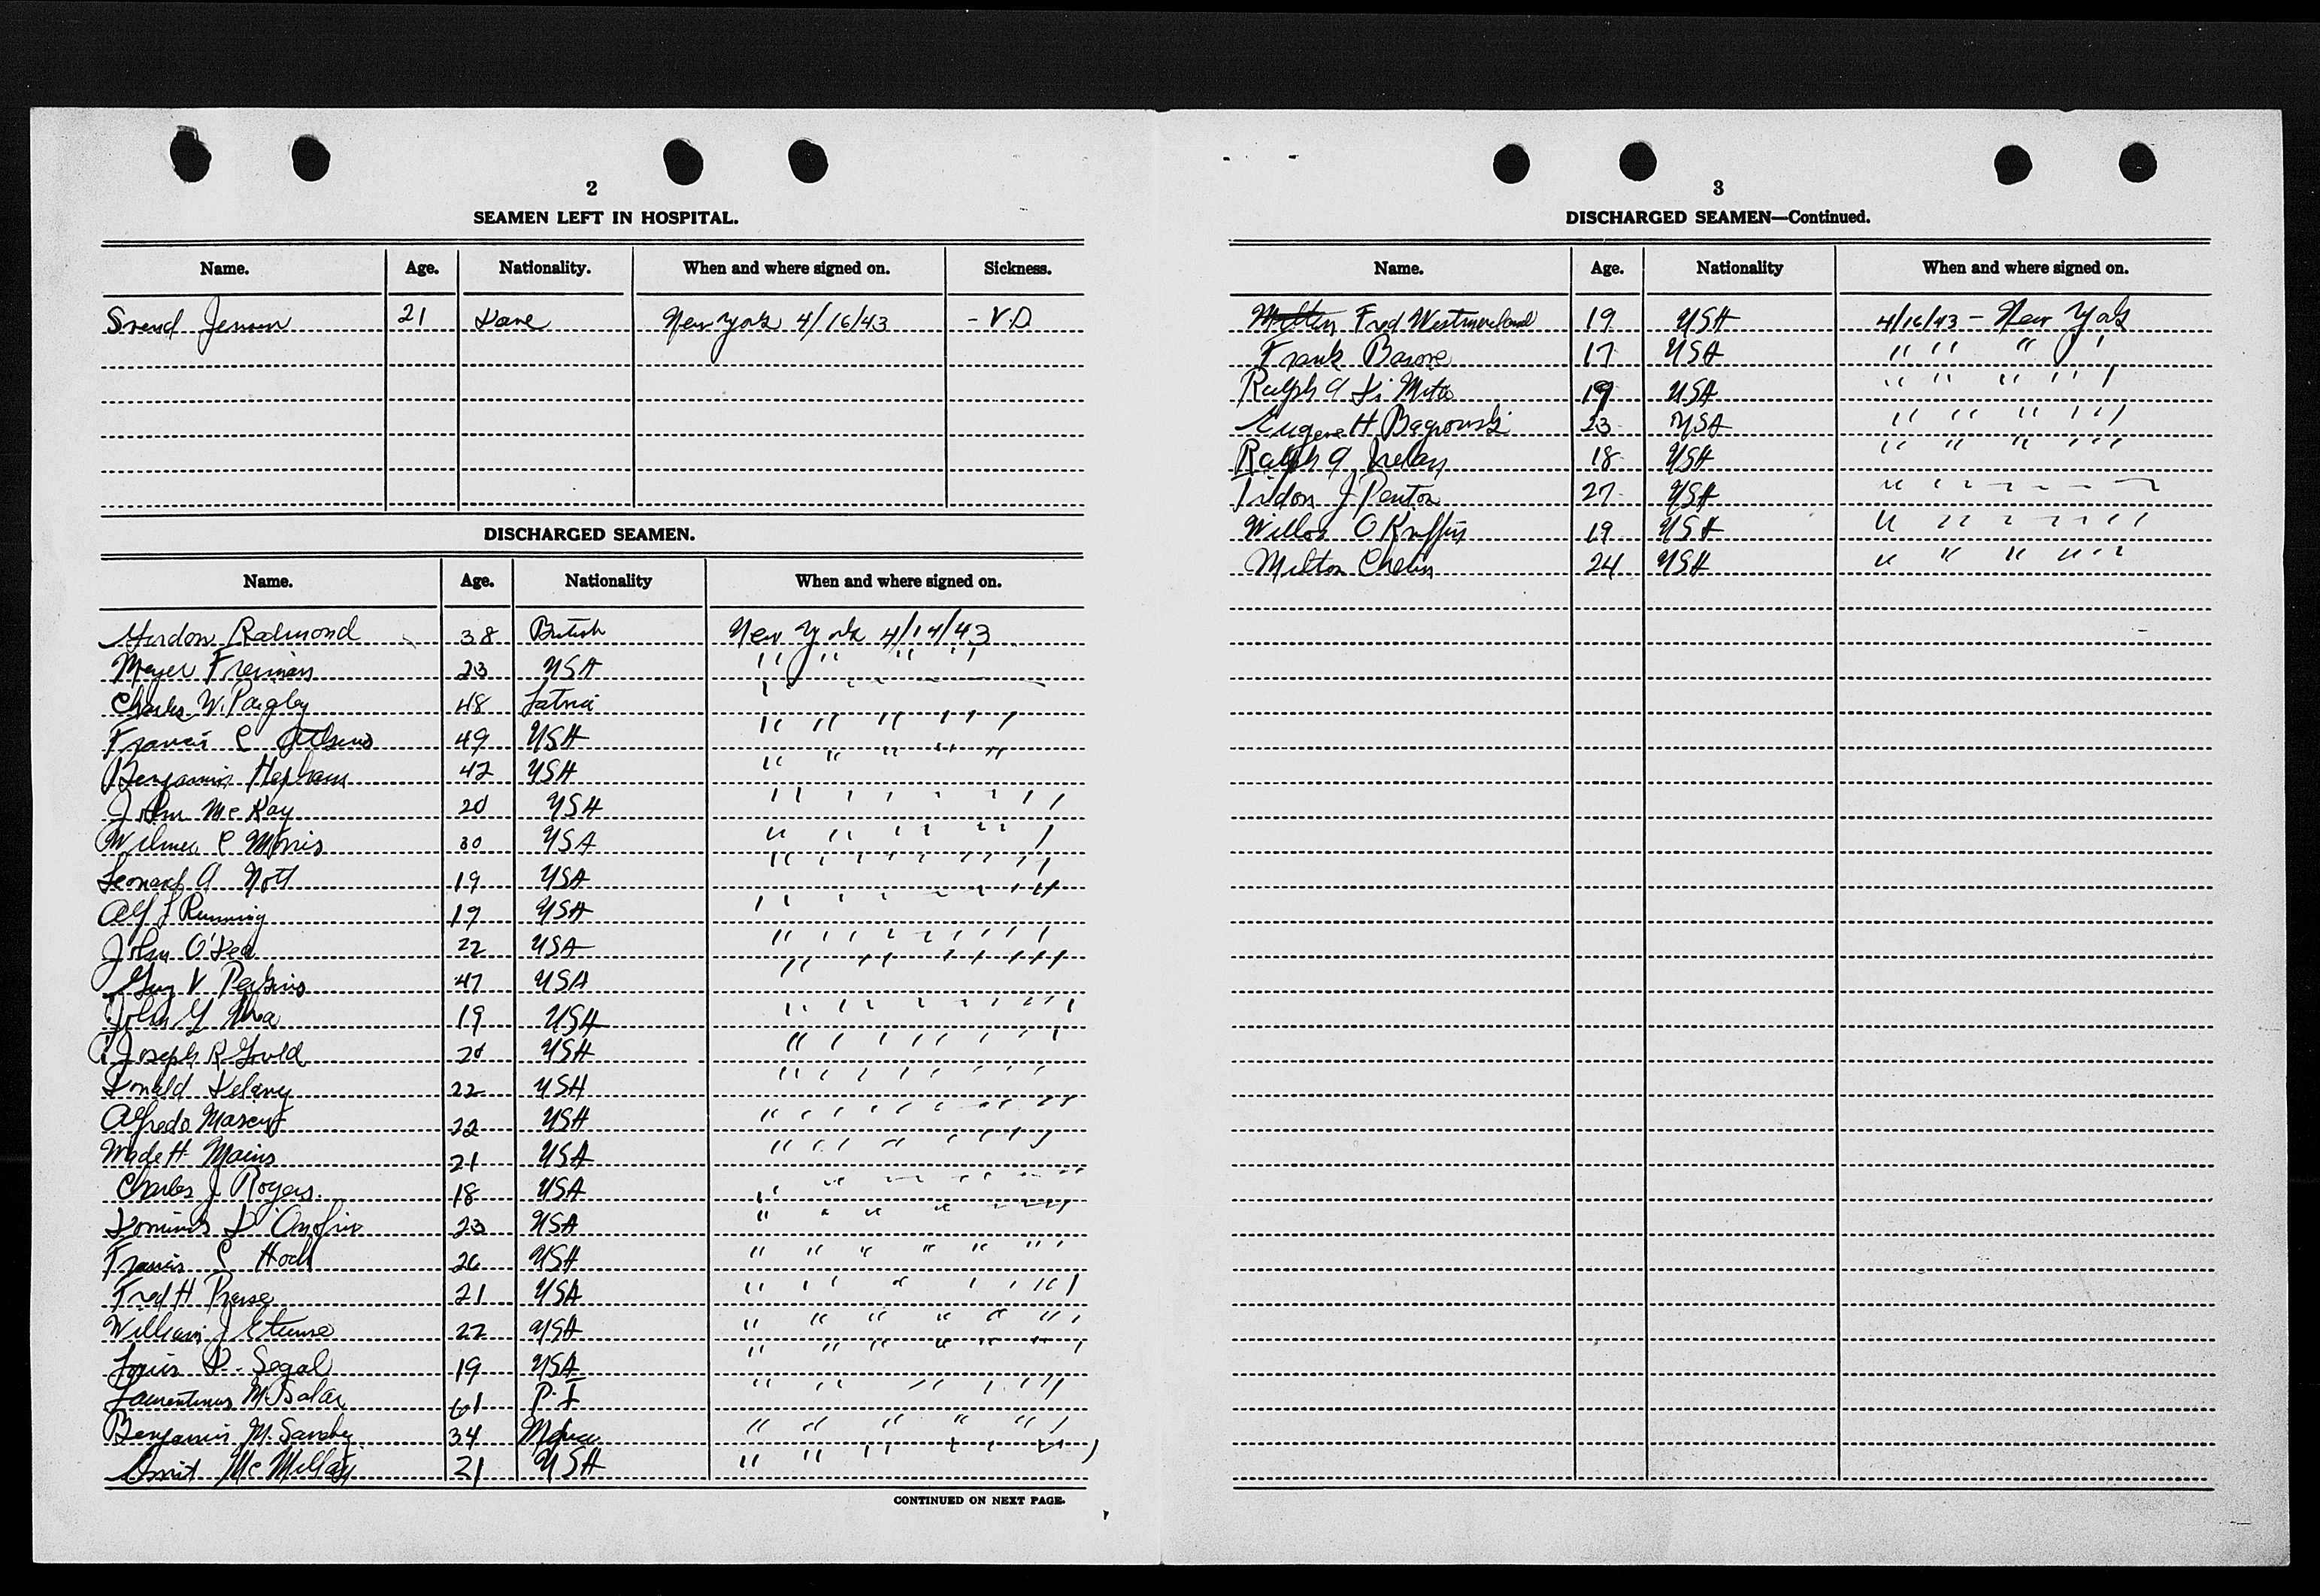 2
SEAMEN LEFT IN HOSPITAL.
Name. Age. Nationality. When and where signed on. Sickness.
Svend Jensen 21 Dane New York 4/16/43 - V.D.
DISCHARGED SEAMEN.
Name. Age. Nationality When and where signed on.
Redmond 38 British New York 4/14/43
Meyer Freiman 23 USA " " " "
Charles W. Pagley 48 Latvia " " " "
Francis C 49 USA " " " "
Benjamin 42 USA " " " "
John McKay 20 USA " " " "
Wilmer C Morris 30 USA " " " "
Leonard A Nott 19 USA " " " "
Alf L Running 19 USA " " " "
John O'Dea 22 USA " " " "
Guy V Perkins 47 USA " " " "
John 19 USA " " " "
Joseph R Gould 20 USA " " " "
Donald Delany 22 USA " " " "
Alfredo 22 USA " " " "
Wade H Mains 21 USA " " " "
Charles J Rogers 18 USA " " " "
D'Onofrio 23 USA " " " "
Francis C Hoch 26 USA " " " "
Fred H 21 USA " " " "
William J 22 USA " " " "
Louis D. Segal 19 USA " " " "
M. Salar 61 P.I " " " "
Benjamin M. 34 " " " "
McMillan 21 USA " " " "
CONTINUED ON NEXT PAGE.
3
DISCHARGED SEAMEN—Continued.
Name. Age. Nationality When and where signed on.
Fred Westmoreland 19 USA 4/16/43 - New York
Frank Barone 17 USA " " " "
Ralph A Di Meta 19 USA " " " "
Eugene H Bagrowski 23 USA " " " "
Ralph A 18 USA " " " "
J Penton 27 USA " " " "
O Ruffin 19 USA " " " "
Milton 24 USA " " " "